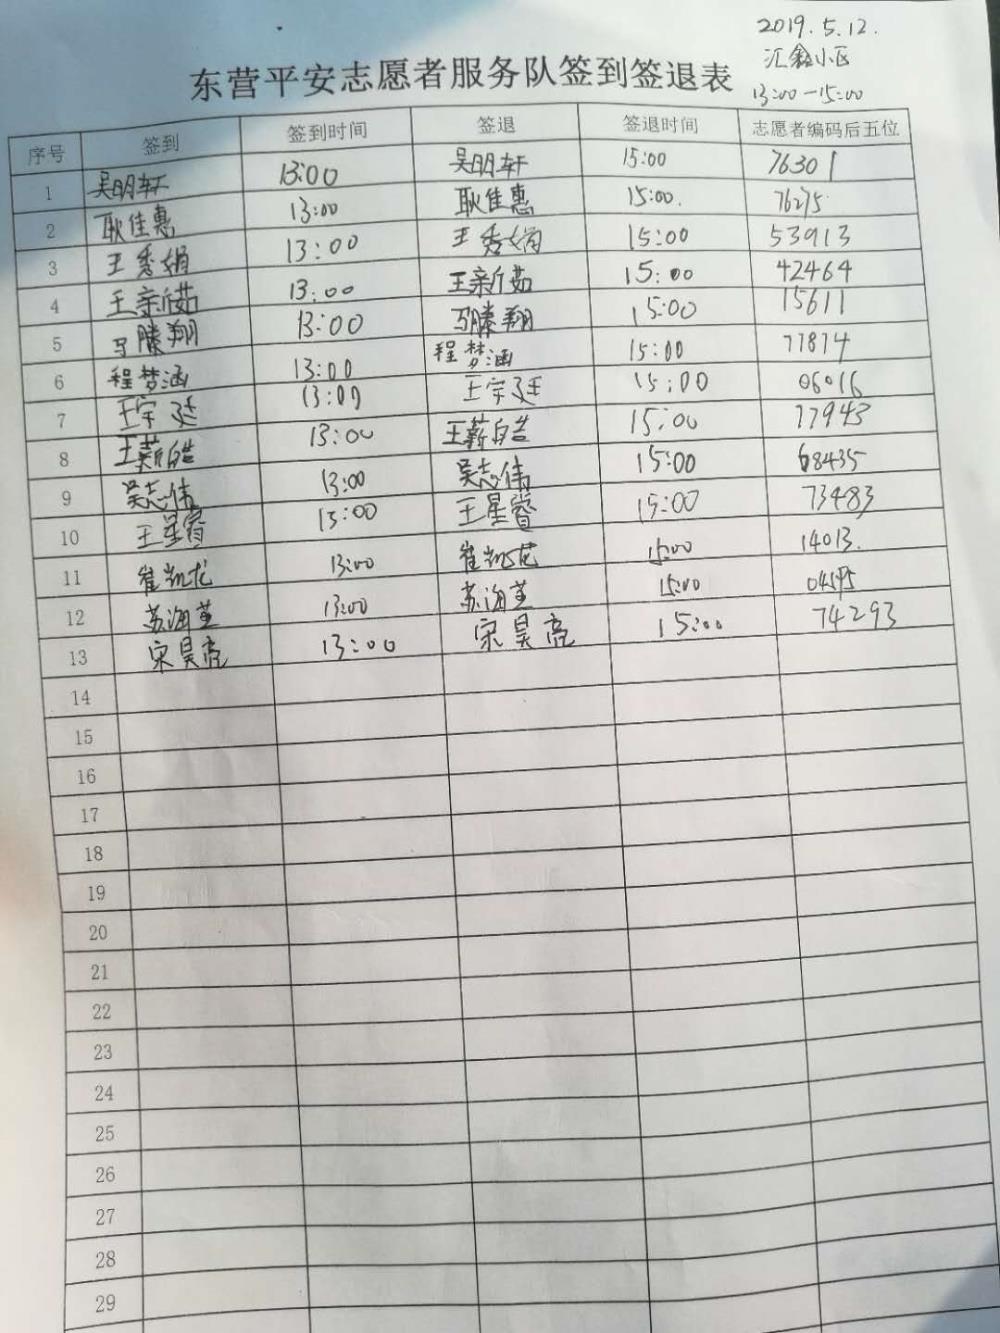 2019.5.12.
汇鑫小区
东营平安志愿者服务队签到签退表
13:00-15:00
序号 签到 签到时间 签退 签退时间 志愿者编码后五位
1 吴明轩 13:00 吴明轩 15:00 76301
2 耿佳惠 13:00 耿佳惠 15:00. 76275
3 王秀娟 13:00 王秀娟 15:00 53913
4 王新茹 13:00 王新茹 15:00 42464
5 马滕翔 13:00 马滕翔 15:00 15611
6 程梦涵 13:00 程梦涵 15:00 77874
7 王宇廷 13:00 王宇廷 15:00 06016
8 王薪皓 13:00 王薪皓 15:00 77943
9 吴志伟 13:00 吴志伟 15:00 68435
10 王星睿 13:00 王星睿 15:00 73483
11 崔凯龙 13:00 崔凯龙 15:00 14013.
12 苏海堇 13:00 苏海堇 15:00
13 宋昊亮 13:00 宋昊亮 15:00 74293
14
15
16
17
18
19
20
21
22
23
24
25
26
27
28
29